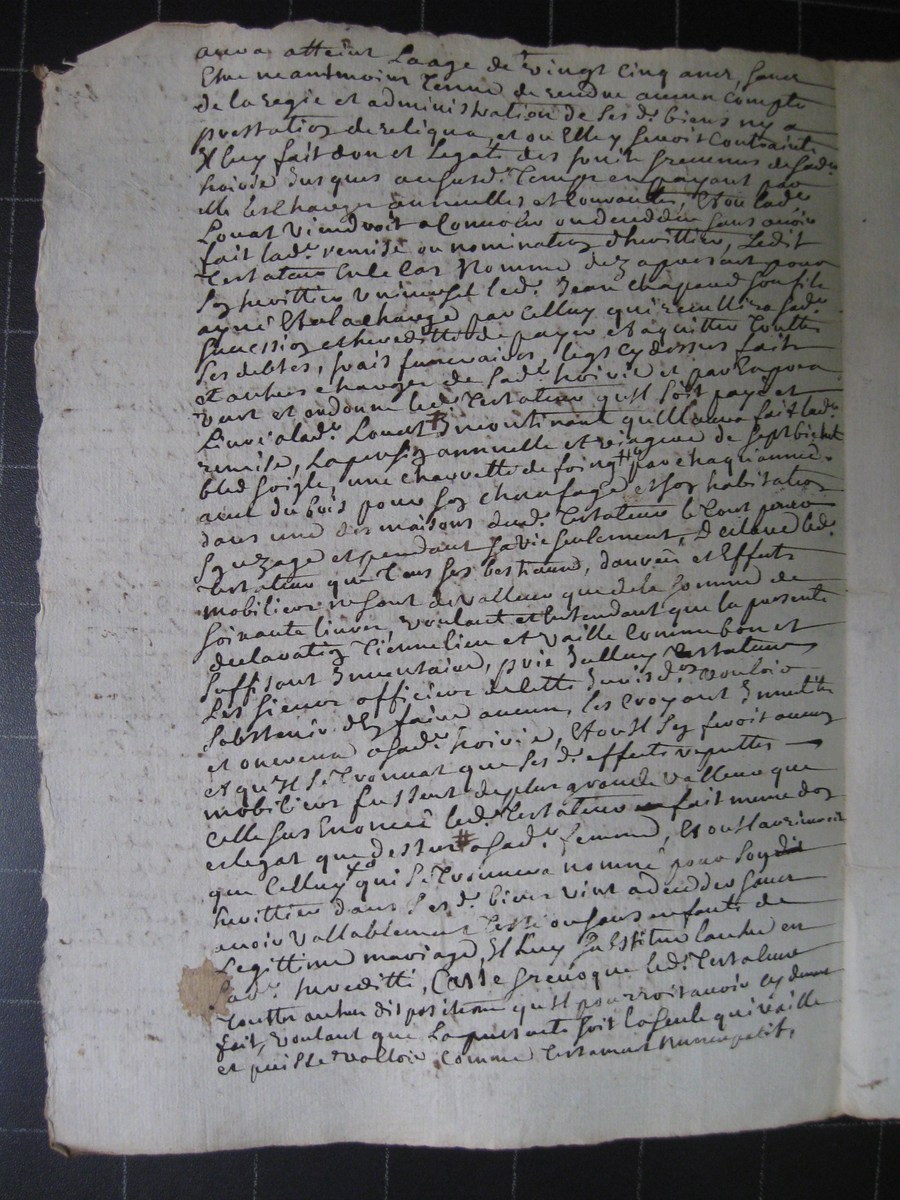 aura atteint Laage de vingt cinq ans, sans
Etre neantmoins Tenue de rendre aucun Compte
de la regie et administration de ses d. biens ny a
prestation de reliqua, et ou Elle y seroit Contrainte
Il luy fait don et Legat des fruits de sad.
hoirie Jusques au susd. Temps en payant par
elle les Charges annuelles et Courantes, Et ou lad.
Louat viendroit a Convoler ou decedder sans avoir
fait lad. remise ou nomination d'heritier, Ledit
Testateur En ce Cas Nomme dez a present pour
Son herittier universel led. Jean Chapaud son fils
ayné Et a la charge par Celluy qui recuillira sad.
succession et heredité de payer et aquitter Touttes
ses debtes, frais funeraires, legs cy dessus faits
et autres charges de sad. hoirie et par
veut et ordonne led. Testateur qu'Il soit payé et
Livré a lad. Louat Incontinant qu'Elle aura fait lad.
remise, La pension annuelle et viagere de sept bichets
bled soigle, une charrette de foing par chaq année
avec du bois pour son chauffage et son habitation
dans une des maisons dud. Testateur le Tout pour
Son uzage et pendant sa vie seulement, Declare led.
Testateur que Tous ses bestiaux, danrées et Effets
mobiliers ne sont de valleur que de la somme de
soixante livres, voulant et Entendant que la presente
declaration Tienne lieu et vaille Comme bon et
suffisant Inventaire, prie Icelluy Testateur
Les sieurs officiers de vouloir
s'abstenir d'En faire aucun, les Croyant Inutille
et onereux a sad. hoirie, Et ou Il s'en feroit aucun
et qu'Il se Trouvat que ses d. effets reputtes
mobiliers fussent de plus grande valleur que
Celle sus Enoncée led. Testateur fait meme don
et legat que dessus a sad. femme, Et ou Il arriveroit
que Celluy qui se Trouvera nommé pour son
herittier dans ses d. biens vint a decedder sans
avoir vallablement Testé ou sans enfants de
Legittime mariage, Il luy substitue laudre en
sad. heredité, Casse et revoque led. Testateur
Touttes autres dispositions qu'Il pourroit avoir cy devant
fait, voulant que La presente soit la seule qui vaille
et puisse valloir Comme Testament Nuncupatif,